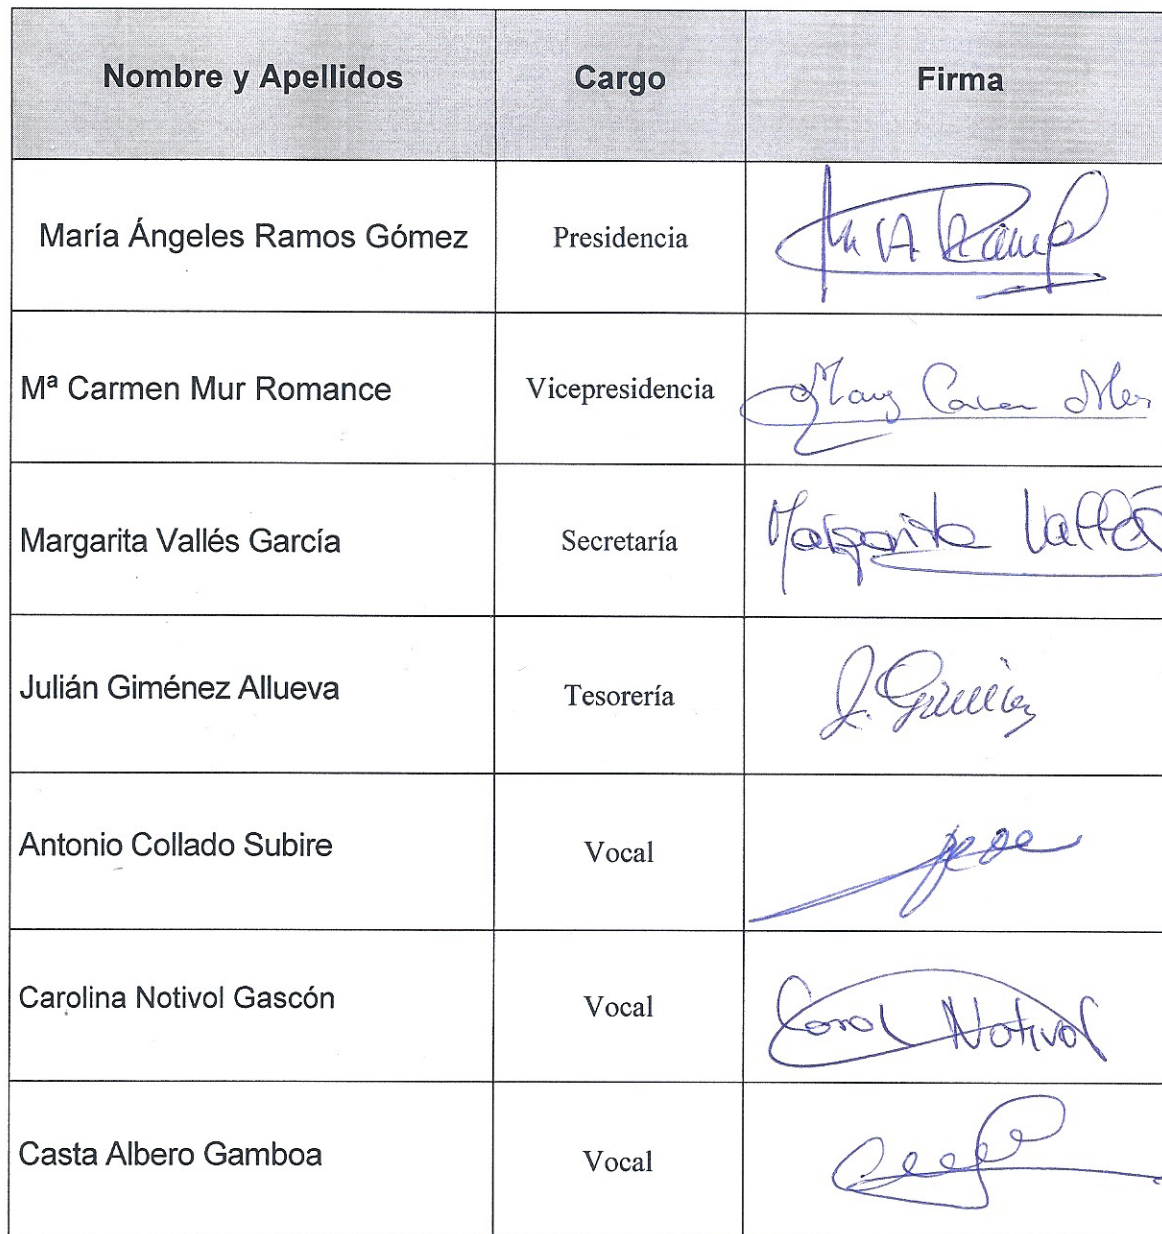 Nombre y Apellidos Cargo Firma
María Ángeles Ramos Gómez Presidencia
Mª Carmen Mur Romance Vicepresidencia
Margarita Vallés García Secretaría Margarita Vallés
Julián Giménez Allueva Tesorería J. Giménez
Antonio Collado Subire Vocal
Carolina Notivol Gascón Vocal Carol Notivol
Casta Albero Gamboa Vocal